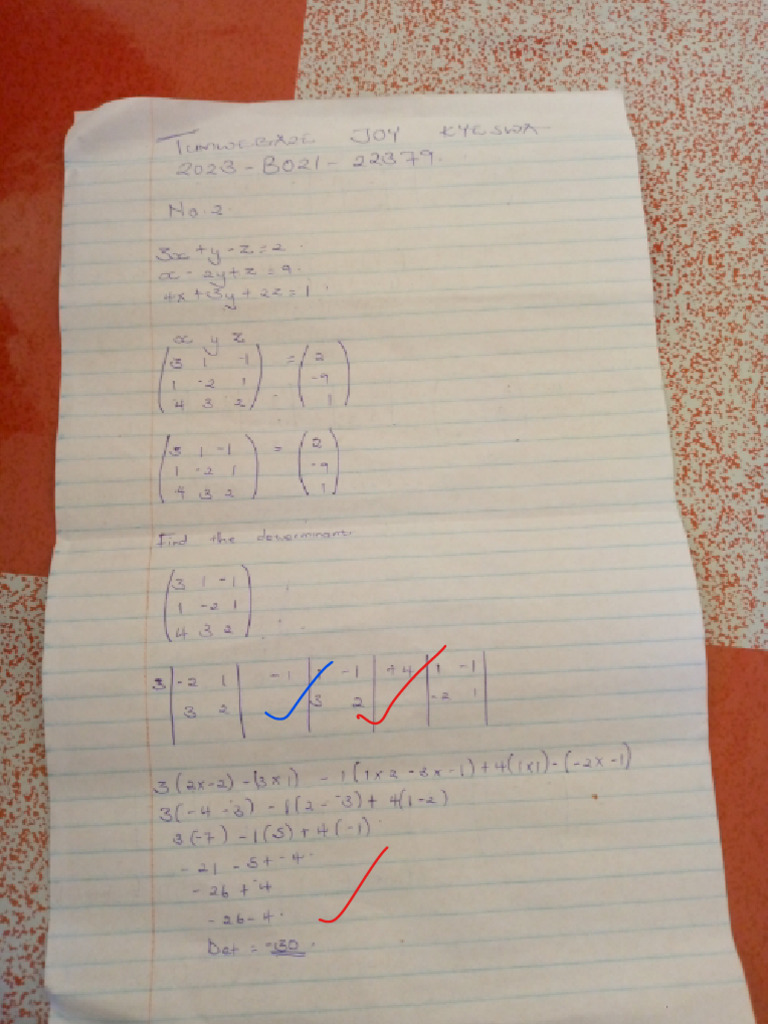 TUMWEBAZE JOY KYESWA
2023-B021-22379.
No.2.
3x + y - z = 2.
x - 2y + z = 9.
4x + 3y + 2z = 1.
x y z
(3 1 -1) = (2)
(1 -2 1) (-9)
(4 3 2) (1)
(3 1 -1) = (2)
(1 -2 1) (-9)
(4 3 2) (1)
Find the determinant
(3 1 -1)
(1 -2 1)
(4 3 2)
3 |-2 1| -1 |1 -1| +4 |1 -1|
|3 2| |3 2| |-2 1|
3(2x-2) -(3x1) - 1(1x2 - 3x-1) + 4(1x1) - (-2x-1)
3(-4 - 3) - 1(2 - -3) + 4(1-2)
3(-7) - 1(5) + 4(-1)
-21 - 5 + -4.
- 26 + -4
- 26 - 4.
Det = -30.